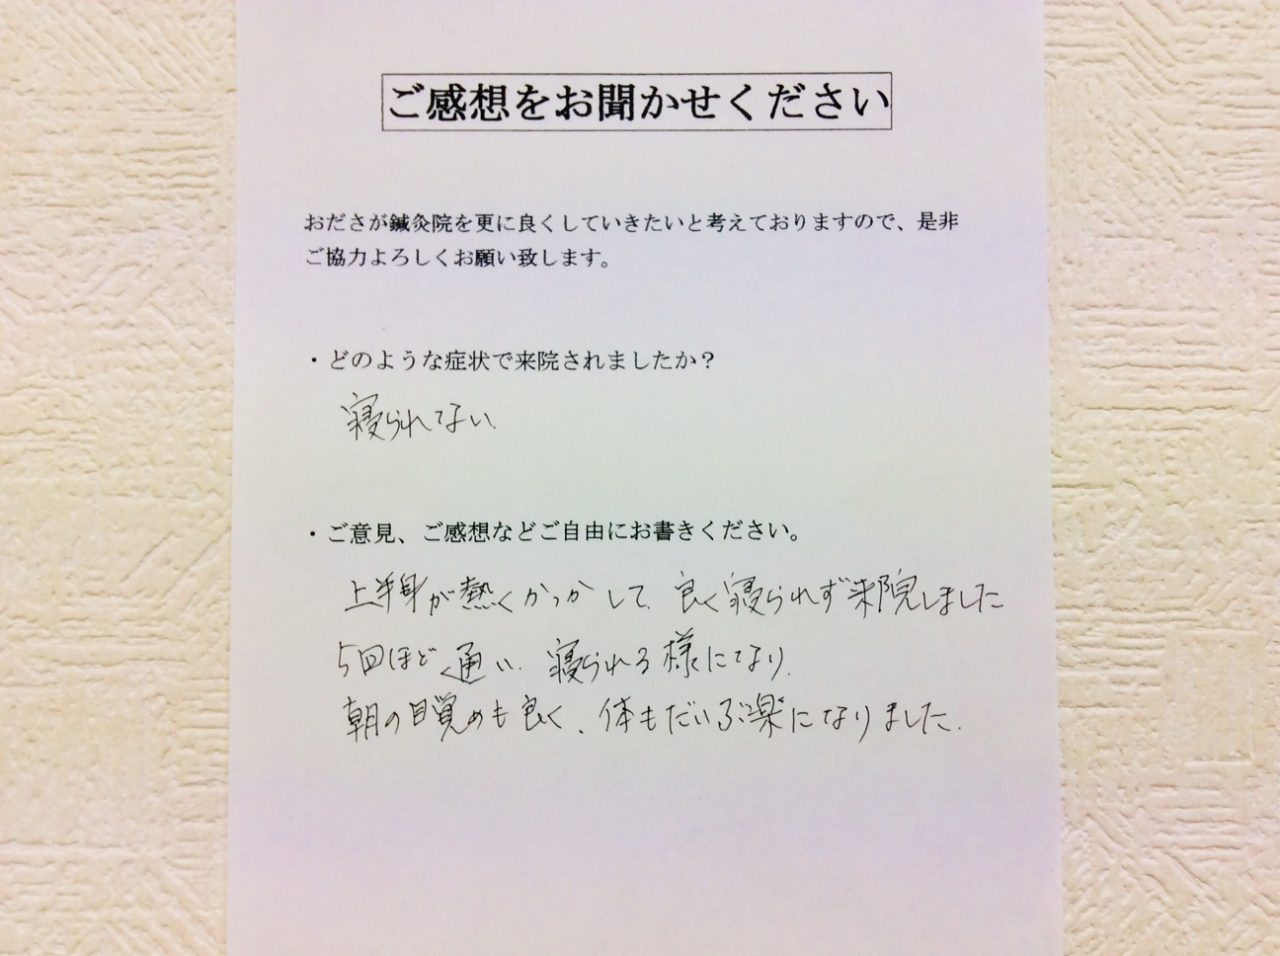 ご感想をお聞かせください
おださが鍼灸院を更に良くしていきたいと考えておりますので、是非
ご協力よろしくお願い致します。
・どのような症状で来院されましたか?
寝られてない
・ご意見、ご感想などご自由にお書きください。
上半身が熱くかっかして、良く寝られず来院しました
5回ほど通い、寝られる様になり、
朝の目覚めも良く、体もだいぶ楽になりました。